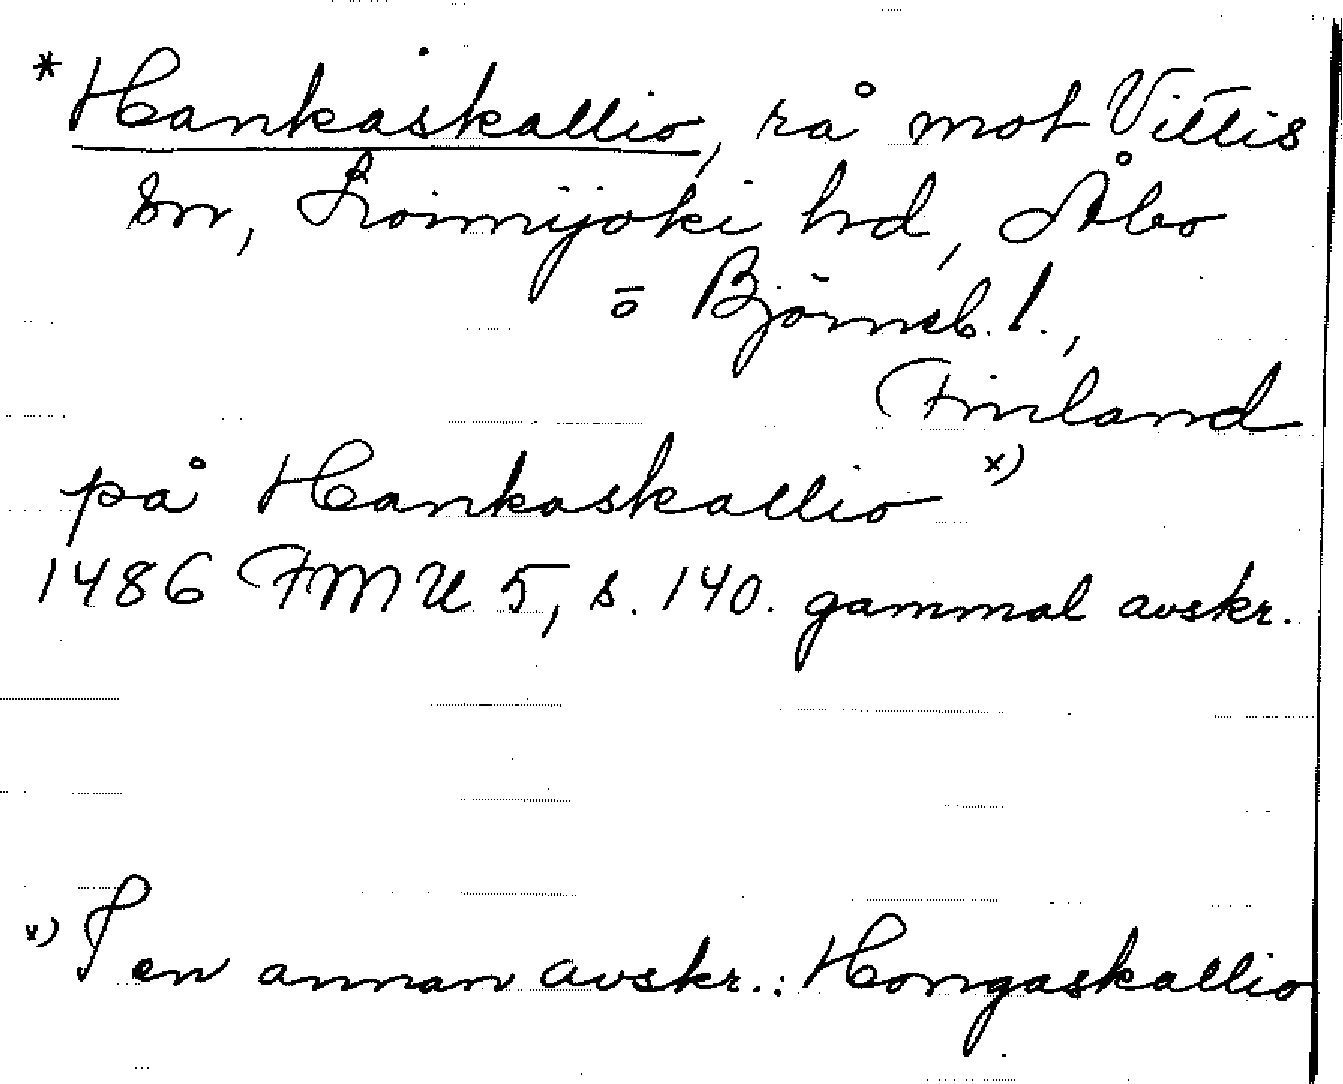 *Hankaskallio, rå mot Vittis
sn, Loimijoki hd, Åbo
o Björneb. l.,
Finland
på Hankaskallio x)
1486 FMU 5, s. 140. gammal avskr.
x) I en annan avskr.: Hongaskallio